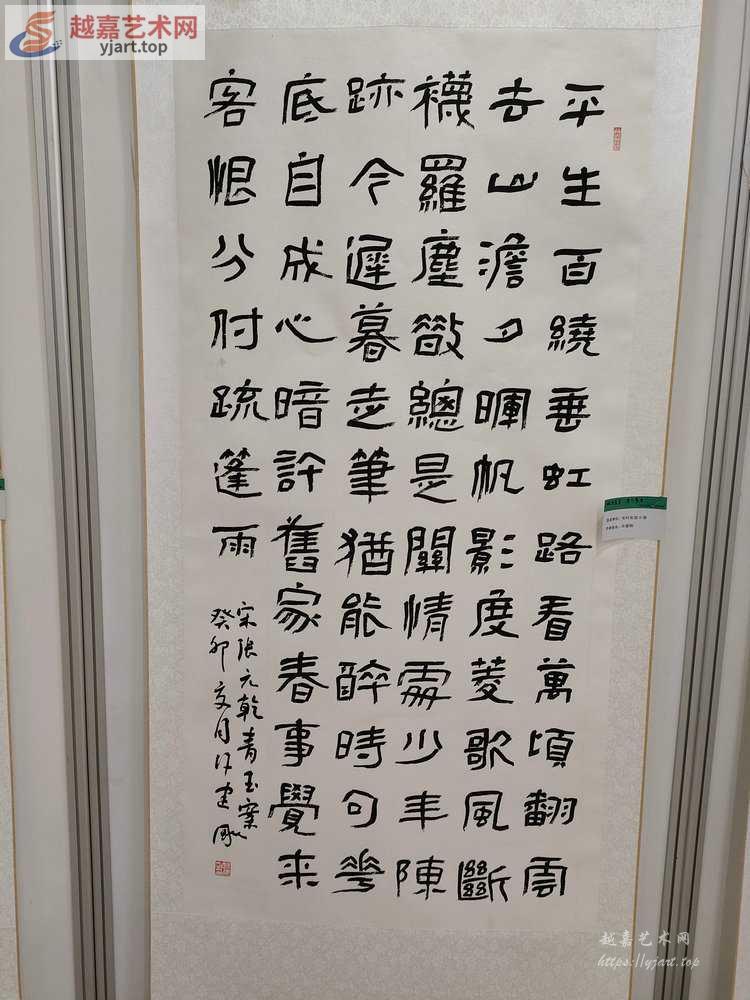 平生百繞垂虹路看萬頃翻雲
去山澹夕暉帆影度菱歌風斷
襪羅塵斂總是關情處少年陳
跡今遲暮走筆猶能醉時句華
底自成心暗許舊家春事覺来
客恨分付疏篷雨
宋張元乾青玉案
癸卯夏月
越嘉艺术网
yjart.top
越嘉艺术网
https://yjart.top